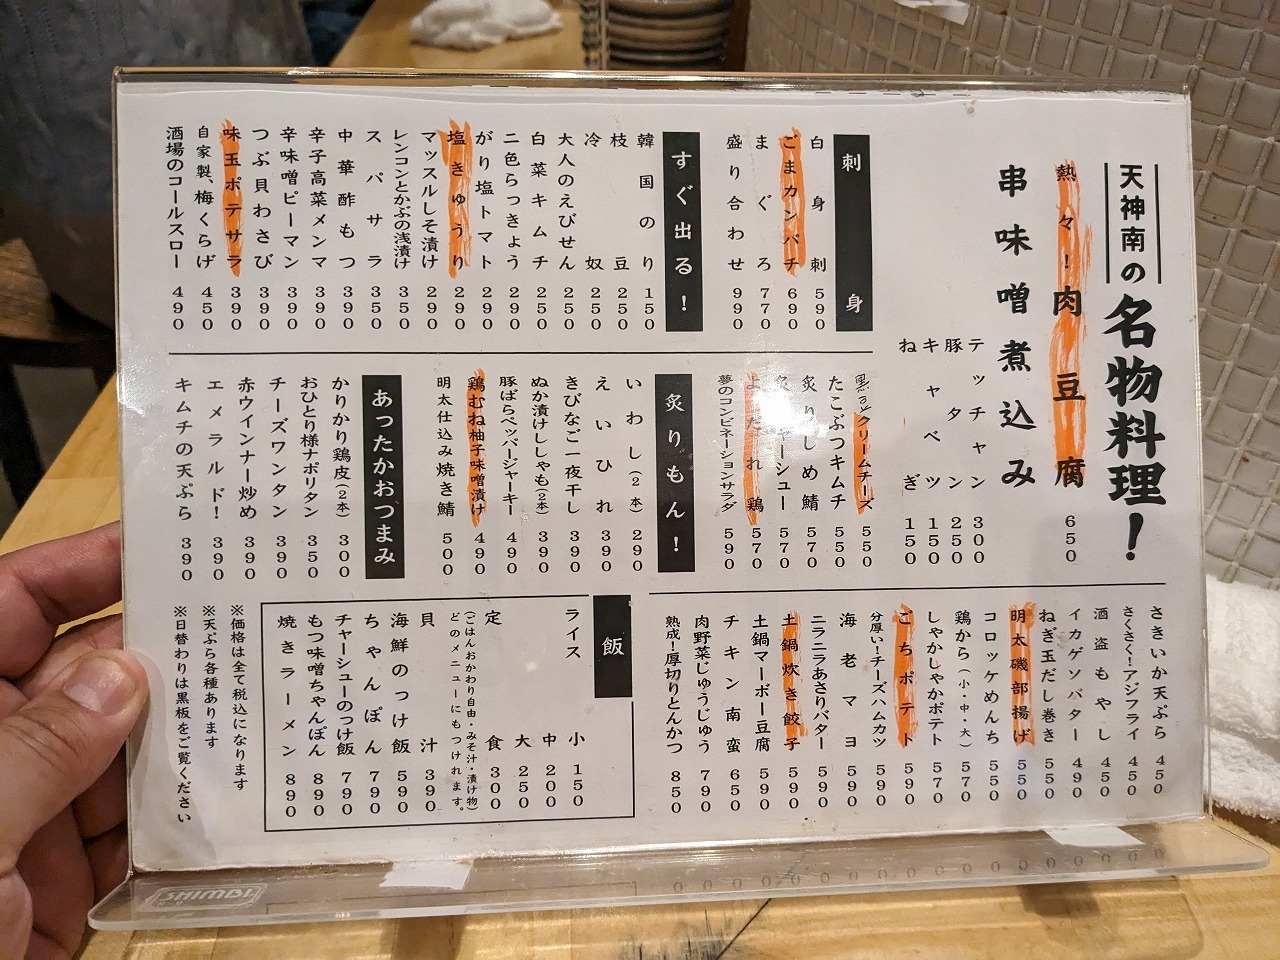 天神南の名物料理！
熱々！肉豆腐 650
串味噌煮込み
テッチャン 300
豚タン 250
キャベツ 150
ねぎ 150
刺身
白身刺 590
ごまカンパチ 690
まぐろ 770
盛り合わせ 990
すぐ出る！
韓国のり 150
枝豆 250
冷奴 250
大人のえびせん 250
白菜キムチ 250
二色らっきょう 290
がり塩トマト 290
塩きゅうり 290
マッスルしそ漬け 290
レンコンとかぶの浅漬け 350
スパサラ 350
中華酢もつ 390
辛子高菜メンマ 390
辛味噌ピーマン 390
つぶ貝わさび 390
味玉ポテサラ 390
自家製、梅くらげ 450
酒場のコールスロー 490
クリームチーズ 550
たこぶつキムチ 550
炙りしめ鯖 570
炙りチャーシュー 570
よだれ鶏 570
夢のコンビネーションサラダ 590
炙りもん！
いわし(2本) 290
えいひれ 390
きびなご一夜干し 390
ぬか漬けししゃも(2本) 390
豚ばらペッパージャーキー 490
鶏むね柚子味噌漬け 490
明太仕込み焼き鯖 500
あったかおつまみ
かりかり鶏皮(2本) 300
おひとり様ナポリタン 350
チーズワンタン 390
赤ウインナー炒め 390
エメラルド！ 390
キムチの天ぷら 390
さきいか天ぷら 450
さくさく！アジフライ 450
酒盗もやし 450
イカゲソバター 490
ねぎ玉だし巻き 550
明太磯部揚げ 550
コロッケめんち 550
鶏から(小・中・大) 570
しゃかしゃかポテト 570
ごちポテト 590
分厚い！チーズハムカツ 590
海老マヨ 590
ニラニラあさりバター 590
土鍋炊き餃子 590
土鍋マーボー豆腐 590
チキン南蛮 650
肉野菜じゅうじゅう 790
熟成！厚切りとんかつ 850
飯
ライス 小 150
中 200
大 250
定食 300
(ごはんおかわり自由・みそ汁・漬け物)
どのメニューにもつけれます。
貝汁 390
海鮮のっけ飯 590
ちゃんぽん 790
チャーシューのっけ飯 790
もつ味噌ちゃんぽん 890
焼きラーメン 890
※価格は全て税込になります
※天ぷら各種あります
※日替わりは黒板をご覧ください
SHIMBI